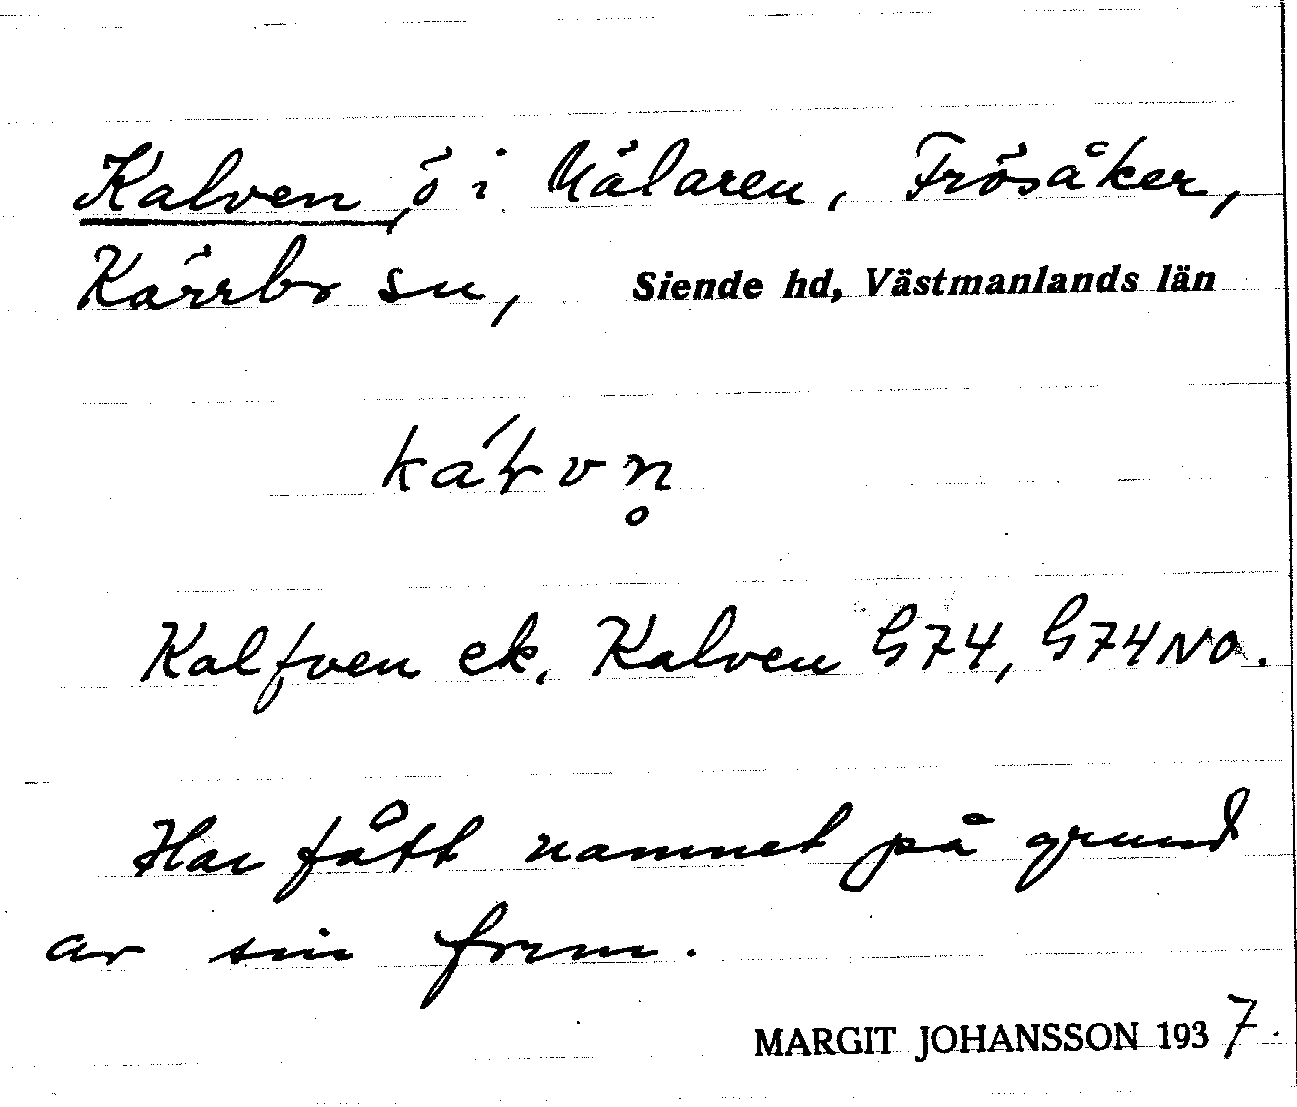 Kalven, ö i Mälaren, Frösåker,
Kärrbo sn, Siende hd, Västmanlands län
Kalfven ek. Kalven G74, G74NO.
Har fått namnet på grund
av sin form.
MARGIT JOHANSSON 1937.